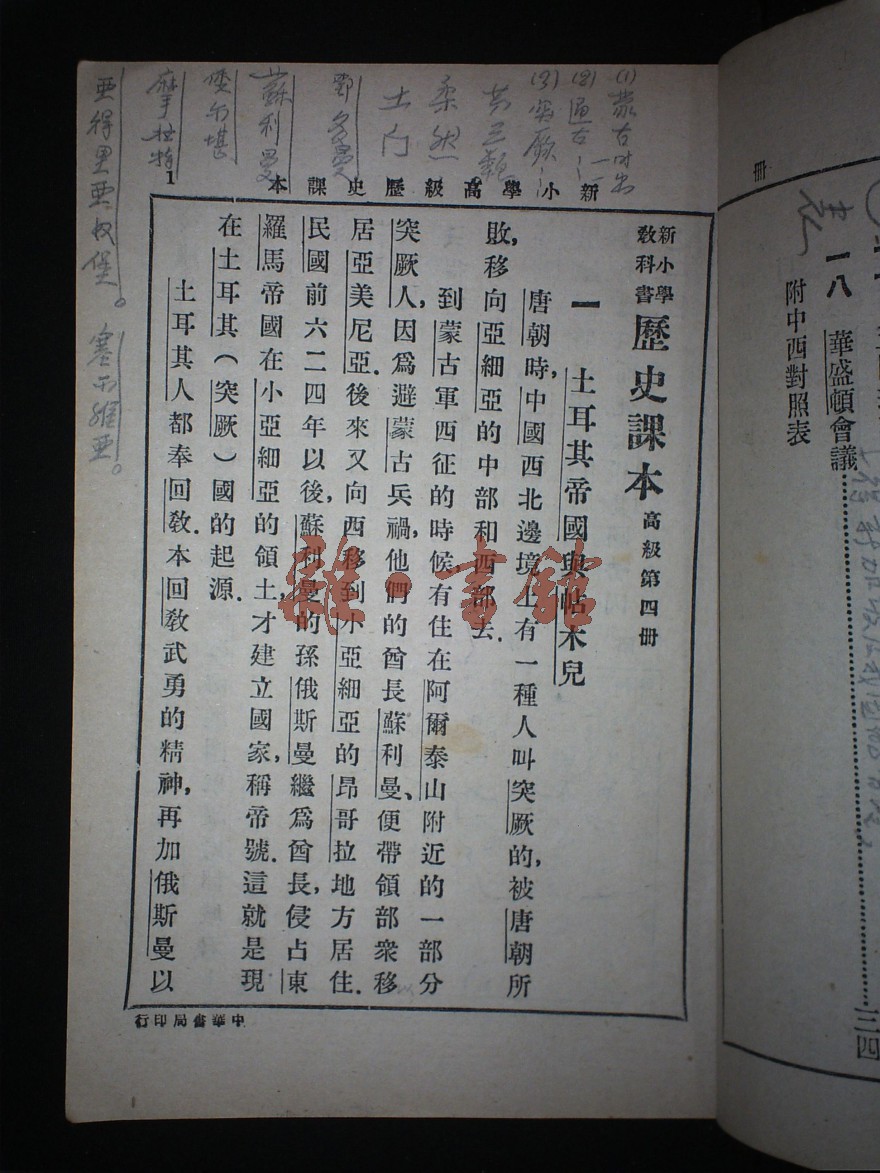 冊
一八　華盛頓會議……三四
附中西對照表
新小學高級歷史課本
1
新小學教科書 歷史課本 高級第四冊
一　土耳其帝國與帖木兒
唐朝時，中國西北邊境上有一種人叫突厥的，被唐朝所
敗，移向亞細亞的中部和西部去．
到蒙古軍西征的時候，有住在阿爾泰山附近的一部分
突厥人，因爲避蒙古兵禍，他們的酋長蘇利曼、便帶領部衆移
居亞美尼亞．後來又向西移到小亞細亞的昂哥拉地方居住．
民國前六二四年以後，蘇利曼的孫俄斯曼繼爲酋長，侵占東
羅馬帝國在小亞細亞的領土，才建立國家，稱帝號．這就是現
在土耳其（突厥）國的起源．
土耳其人都奉回敎．本回敎武勇的精神，再加俄斯曼以
中華書局印行
(1) 蒙古
(2)
(3) 突厥
柔然
土门
蘇利曼
亜得里亜
雜·書館